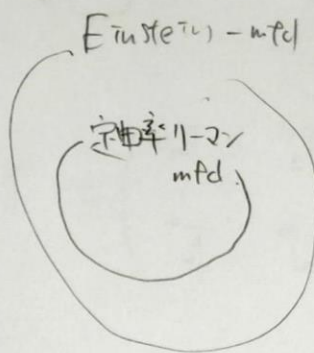 Einstein-mfd
定曲率リーマン
mfd.